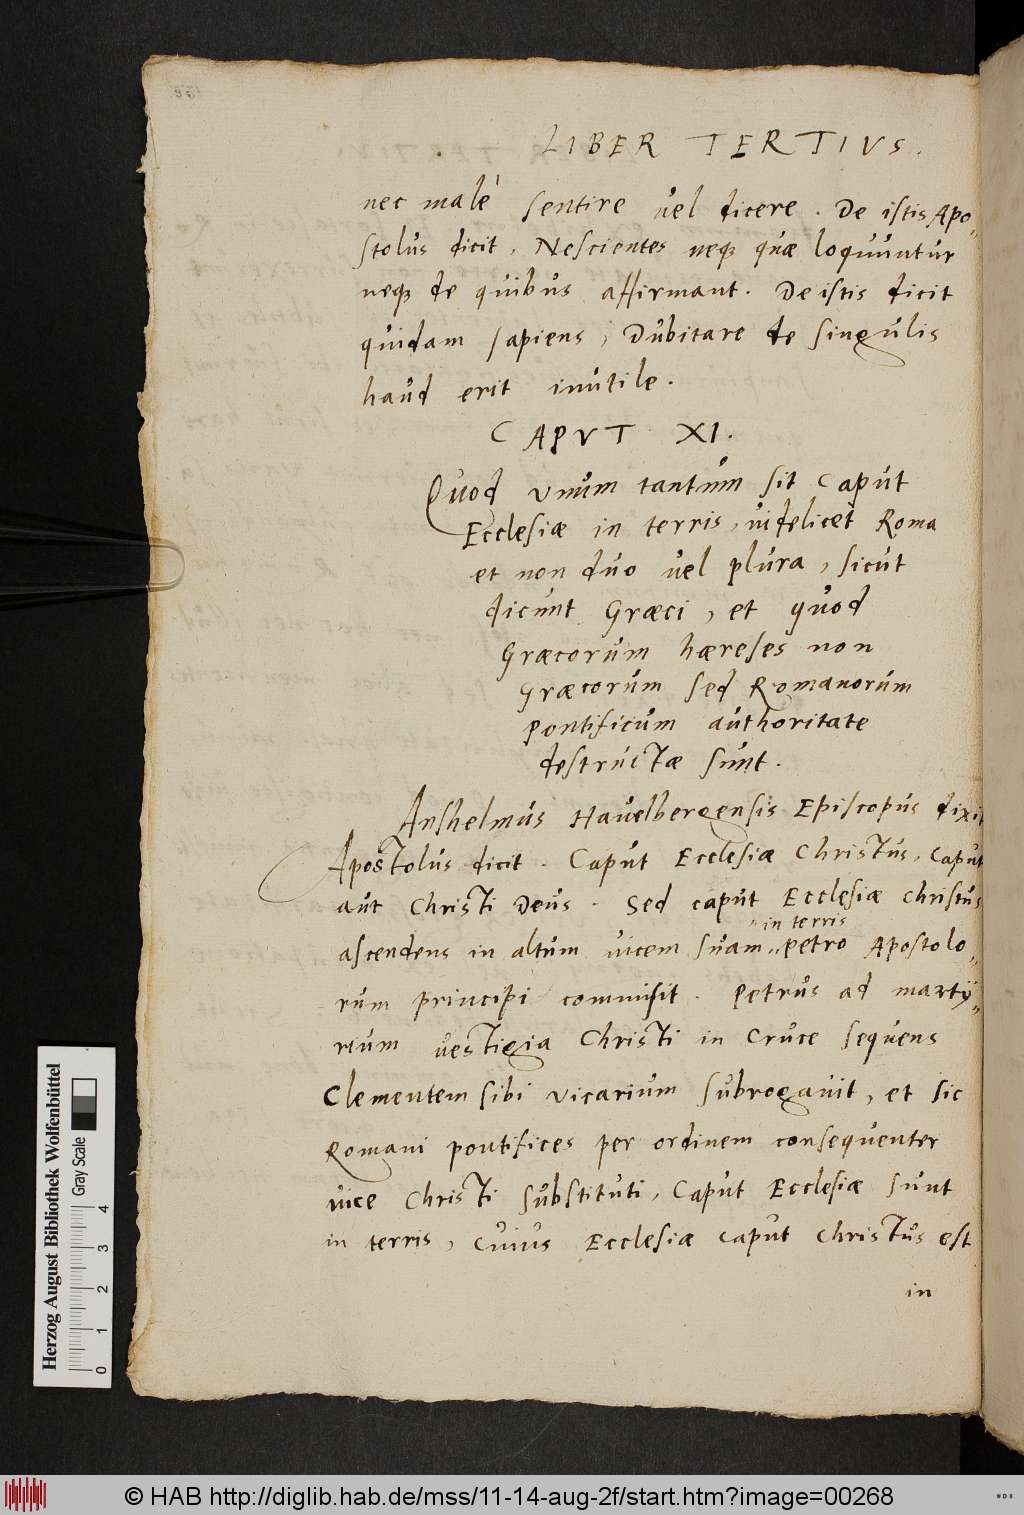 LIBER TERTIVS.
nec malè sentire vel dicere. De istis Apo„
stolus dicit, Nescientes neq; quæ loquuntur
neq; de quibus affirmant. De istis dicit
quidam sapiens, Dubitare de singulis
haud erit inutile.
CAPVT XI.
Quod vnum tantum sit Caput
Ecclesiæ in terris, uidelicet Roma
et non duo uel plura, sicut
dicunt Græci, et quod
Græcorum hæreses non
Græcorum sed Romanorum
pontificum authoritate
destructæ sunt.
Anshelmus Hauelbergensis Episcopus dixit
Apostolus dicit. Caput Ecclesiæ Christus, Caput
aut Christi Deus. Sed caput Ecclesiæ christus
„in terris
ascendens in altum uicem suam „petro Apostolo„
rum principi commisit. Petrus ad marty„
rium uestigia Christi in Cruce sequens
Clementem sibi vicarium subrogauit, et sic
Romani pontifices per ordinem consequenter
uice Christi substituti, Caput Ecclesiæ sunt
in terris, cuius Ecclesiæ caput Christus est
in
Herzog August Bibliothek Wolfenbüttel
Gray Scale
0 1 2 3 4
© HAB http://diglib.hab.de/mss/11-14-aug-2f/start.htm?image=00268